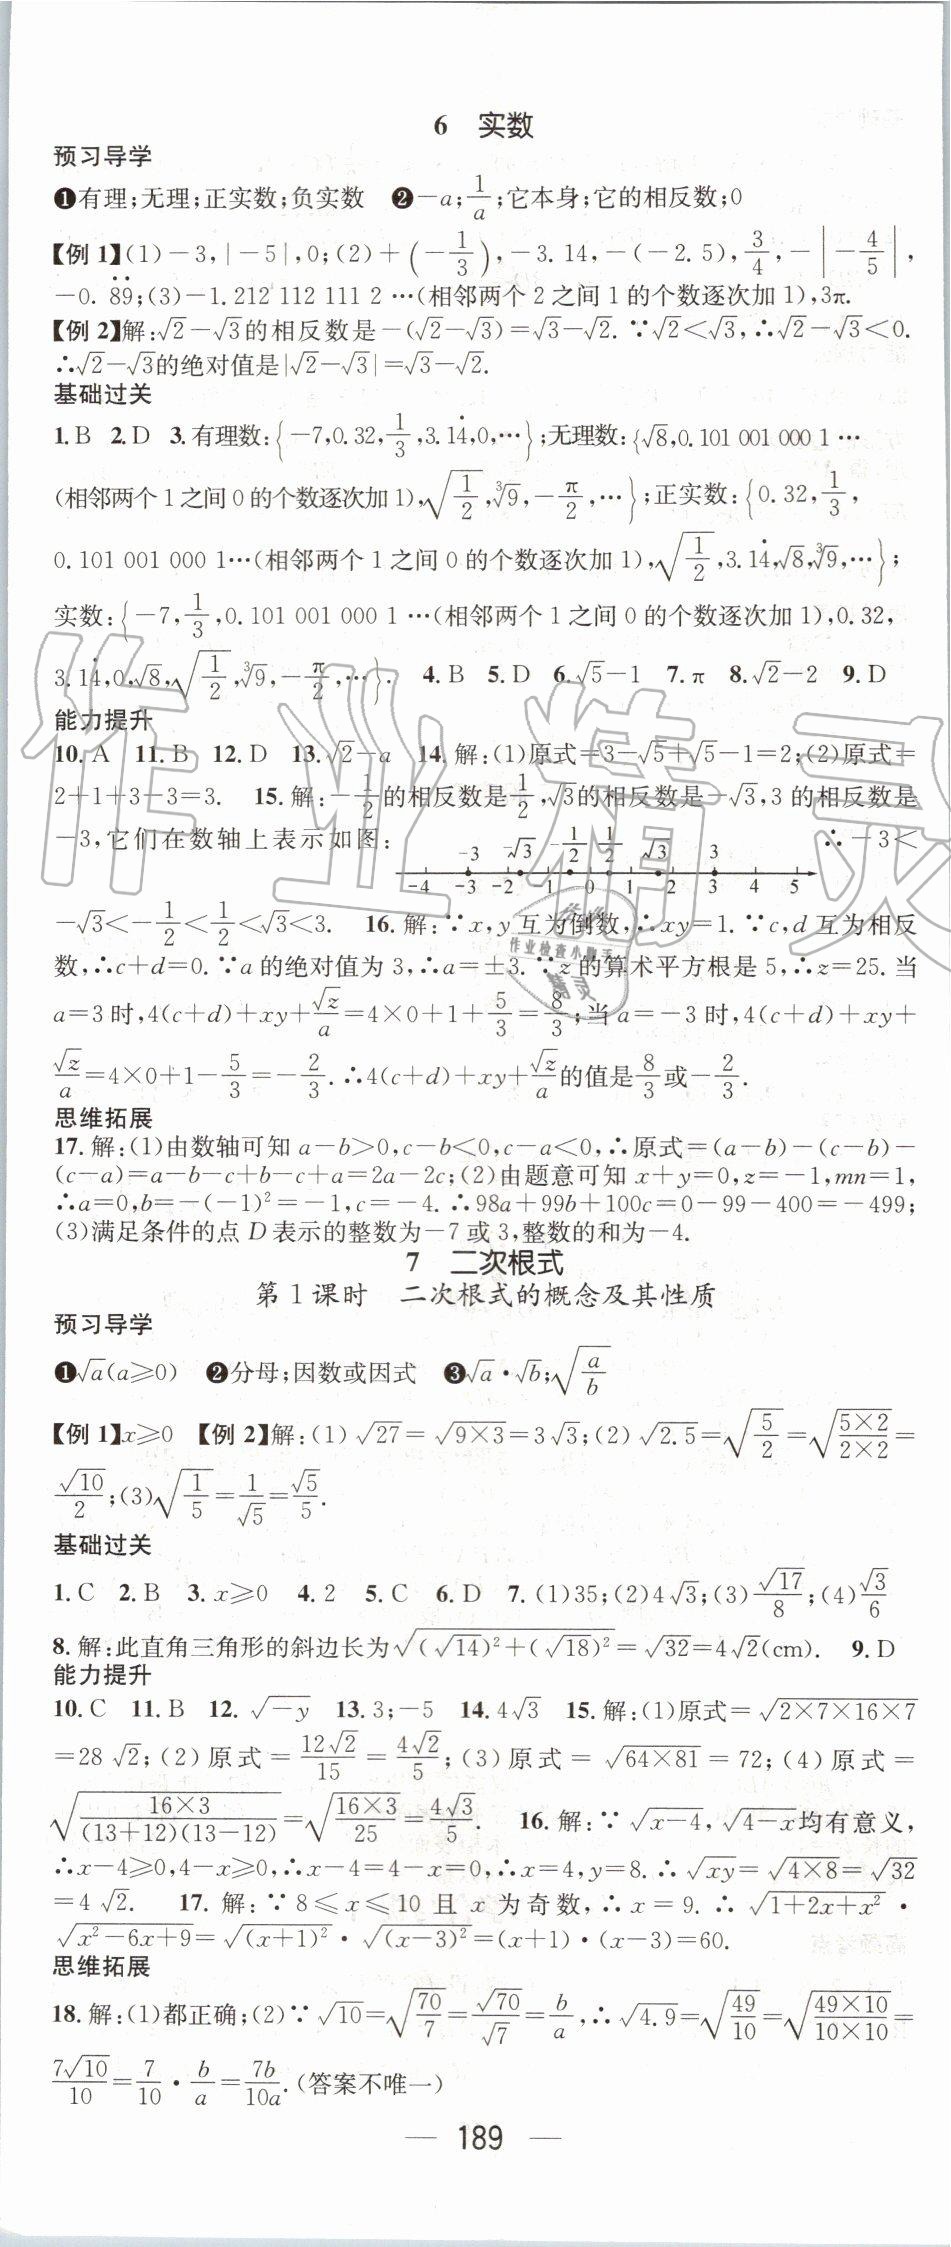 6 实数
预习导学
❶有理;无理;正实数;负实数 ❷-a;1/a;它本身;它的相反数;0
【例1】(1)-3,|-5|,0;(2)+(-1/3),-3.14,-(-2.5),3/4,-|-4/5|,
-0.8̇9̇;(3)-1.212 112 111 2…(相邻两个2之间1的个数逐次加1),3π.
【例2】解:√2-√3的相反数是-(√2-√3)=√3-√2.∵√2<√3,∴√2-√3<0.
∴√2-√3的绝对值是|√2-√3|=√3-√2.
基础过关
1.B 2.D 3.有理数:{-7,0.32,1/3,3.14̇,0,…};无理数:{√8,0.101 001 000 1…
(相邻两个1之间0的个数逐次加1),√(1/2),∛9,-π/2,…};正实数:{0.32,1/3,
0.101 001 000 1…(相邻两个1之间0的个数逐次加1),√(1/2),3.14̇,√8,∛9,…};
实数:{-7,1/3,0.101 001 000 1…(相邻两个1之间0的个数逐次加1),0.32,
3.14̇,0,√8,√(1/2),∛9,-π/2,…}. 4.B 5.D 6.√5-1 7.π 8.√2-2 9.D
能力提升
10.A 11.B 12.D 13.√2-a 14.解:(1)原式=3-√5+√5-1=2;(2)原式=
2+1+3-3=3. 15.解:-1/2的相反数是1/2,√3的相反数是-√3,3的相反数是
-3,它们在数轴上表示如图: -3 -√3 -1/2 1/2 √3 3 ∴-3<
-4 -3 -2 -1 0 1 2 3 4 5
-√3<-1/2<1/2<√3<3. 16.解:∵x,y互为倒数,∴xy=1.∵c,d互为相反
数,∴c+d=0.∵a的绝对值为3,∴a=±3.∵z的算术平方根是5,∴z=25.当
a=3时,4(c+d)+xy+√z/a=4×0+1+5/3=8/3;当a=-3时,4(c+d)+xy+
√z/a=4×0+1-5/3=-2/3.∴4(c+d)+xy+√z/a的值是8/3或-2/3.
思维拓展
17.解:(1)由数轴可知a-b>0,c-b<0,c-a<0,∴原式=(a-b)-(c-b)-
(c-a)=a-b-c+b-c+a=2a-2c;(2)由题意可知x+y=0,z=-1,mn=1,
∴a=0,b=-(-1)²=-1,c=-4.∴98a+99b+100c=0-99-400=-499;
(3)满足条件的点D表示的整数为-7或3,整数的和为-4.
7 二次根式
第1课时 二次根式的概念及其性质
预习导学
❶√a(a≥0) ❷分母;因数或因式 ❸√a·√b;√(a/b)
【例1】x≥0 【例2】解:(1)√27=√(9×3)=3√3;(2)√2.5=√(5/2)=√((5×2)/(2×2))=
√10/2;(3)√(1/5)=1/√5=√5/5.
基础过关
1.C 2.B 3.x≥0 4.2 5.C 6.D 7.(1)35;(2)4√3;(3)√17/8;(4)√3/6
8.解:此直角三角形的斜边长为√((√14)²+(√18)²)=√32=4√2(cm). 9.D
能力提升
10.C 11.B 12.√(-y) 13.3;-5 14.4√3 15.解:(1)原式=√(2×7×16×7)
=28√2;(2)原式=12√2/15=4√2/5;(3)原式=√(64×81)=72;(4)原式=
√((16×3)/((13+12)(13-12)))=√((16×3)/25)=4√3/5. 16.解:∵√(x-4),√(4-x)均有意义,
∴x-4≥0,4-x≥0,∴x-4=4-x=0,∴x=4,y=8.∴√(xy)=√(4×8)=√32
=4√2. 17.解:∵8≤x≤10且x为奇数,∴x=9.∴√(1+2x+x²)·
√(x²-6x+9)=√((x+1)²)·√((x-3)²)=(x+1)·(x-3)=60.
思维拓展
18.解:(1)都正确;(2)∵√10=√(70/7)=√70/√7=b/a,∴√4.9=√(49/10)=√((49×10)/(10×10))=
7√10/10=7/10·b/a=7b/10a.(答案不唯一)
— 189 —
作业精灵
作业检查小助手
精灵